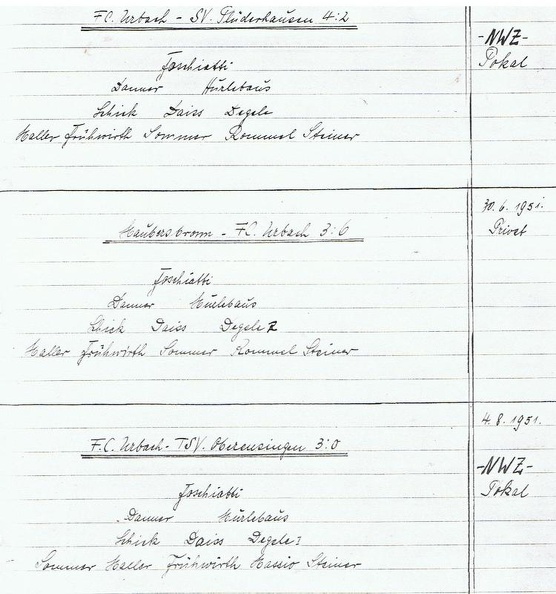 F.C. Urbach - SV. Plüderhausen 4:2
-NWZ-
Pokal
Foschiatti
Danner Hurlebaus
Schick Daiss Degele
Haller Frühwirth Sommer Rommel Steiner
30. 6. 1951.
Privat
Haubersbronn - F.C. Urbach 3:6
Foschiatti
Danner Hurlebaus
Schick Daiss Degele
Haller Frühwirth Sommer Rommel Steiner
4. 8. 1951.
F.C. Urbach - TSV. Oberensingen 3:0
-NWZ-
Pokal
Foschiatti
Danner Hurlebaus
Schick Daiss Degele
Sommer Haller Frühwirth Steiner